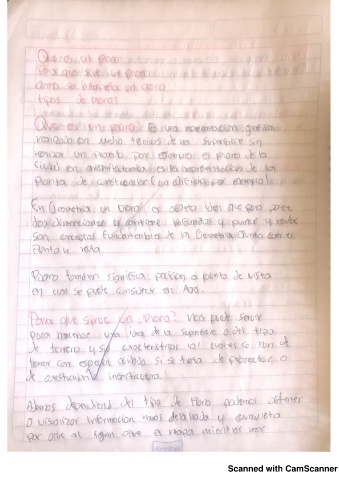 Que es un plano
para que sirve un plano
como se interpreta un plano
tipos de planos
Que es un plano? Es una representacion grafica
realizada en medio tecnico de una superficie sin
un plano por ejemplo el plano de la
ciudad en arquitectura es la representacion de las
planta de construccion (un edificio por ejemplo).
En Geometria un plano es objeto ideal que solo posee
dos dimensiones y contiene infinitos y puntos y rectas
son conceptos fundamentales de la Geometria junto con el
punto y recta
Plano tambien significa posicion o punto de vista
en cual se puede considerar en Algo.
Para que sirve un plano? nos puede servir
para una idea de la superficie o del tipo
de terreno y sus caracteristicas las cuales se han de
tener con especial cuidado si se trata de proyectar o
de construccion
Ahora dependiendo del tipo de Plano podemos obtener
o visualizar informacion mas detallada y completa
por que al igual que el mapa mientras mas
Scanned with CamScanner